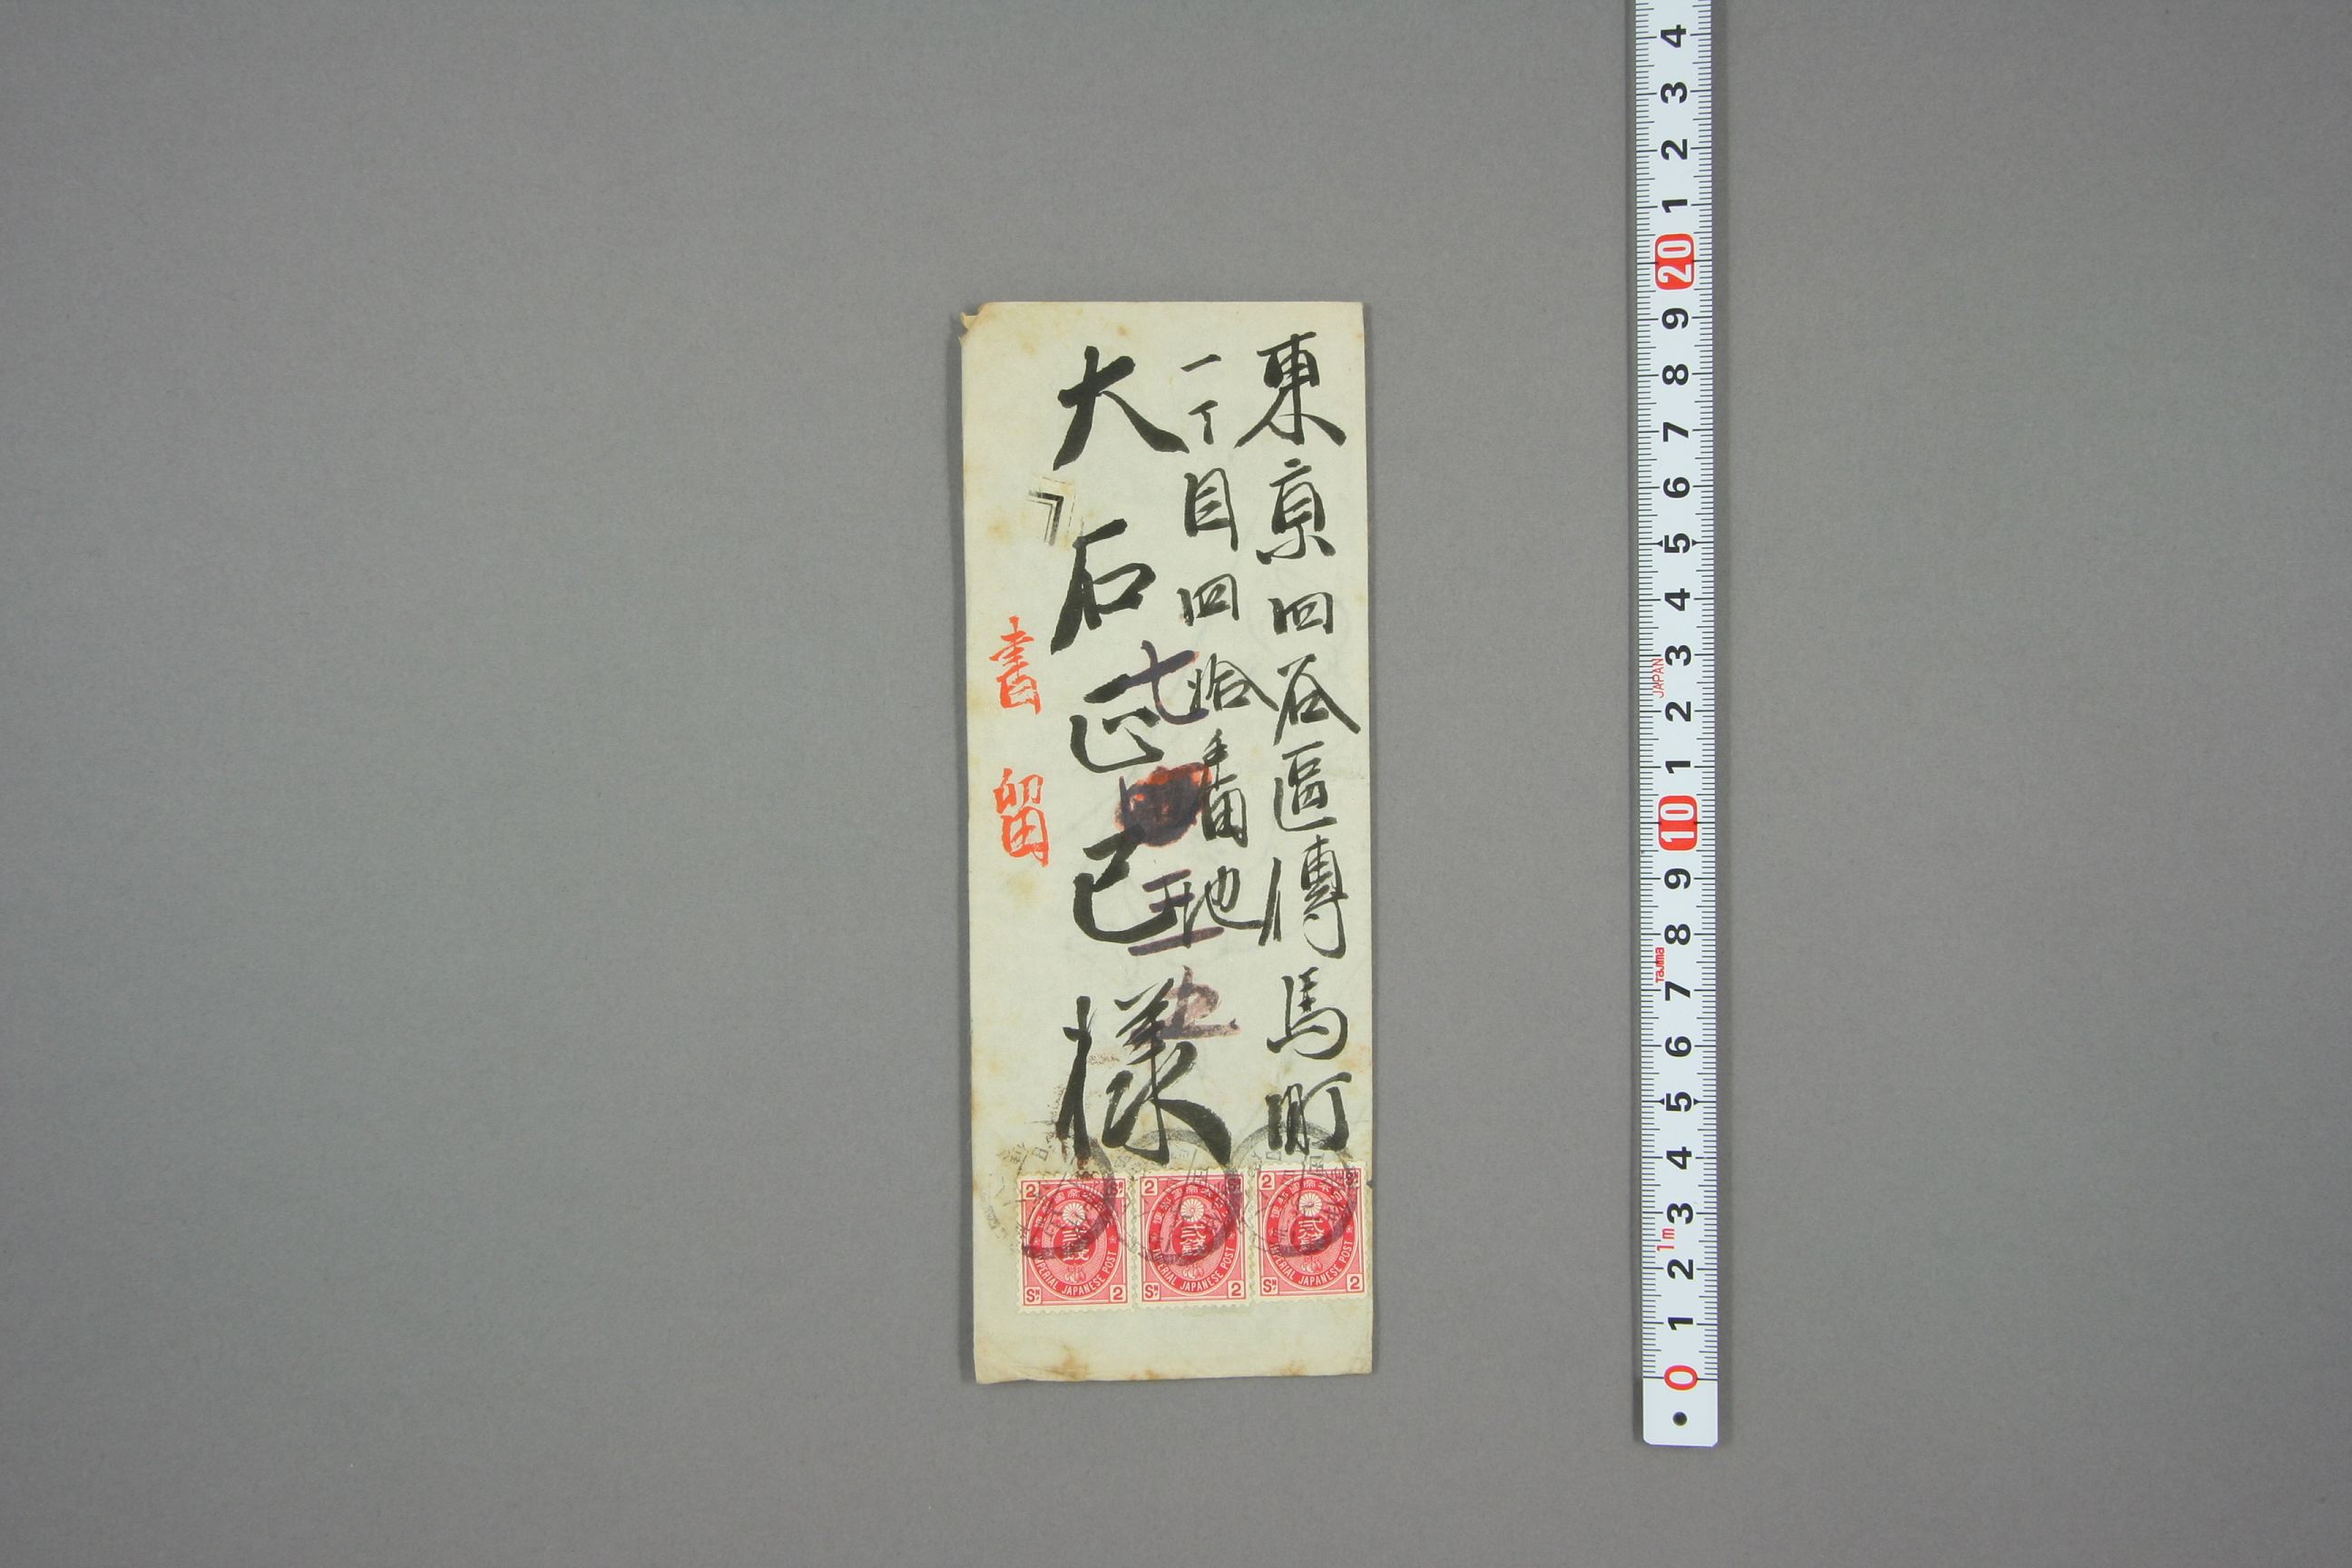 東京四谷區傳馬町
一丁目四拾番地
七
五
大石正巳様
書留
2 Sɴ 貳錢 IMPERIAL JAPANESE POST Sɴ 2
2 Sɴ 貳錢 IMPERIAL JAPANESE POST Sɴ 2
2 Sɴ 貳錢 IMPERIAL JAPANESE POST Sɴ 2
4
3
2
1
20
9
8
7
6
5
4
3
JAPAN
2
1
10
9
8
Tajima
7
6
5
4
3
1m
2
1
0